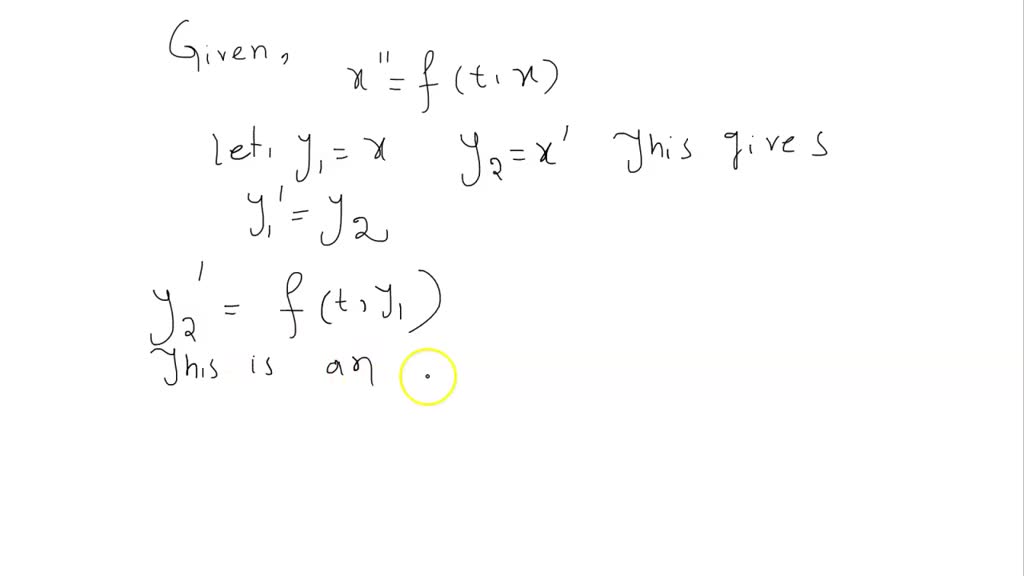 Given,
x'' = f (t, x)
let, y₁ = x y₂ = x' This gives
y₁' = y₂
y₂' = f (t, y₁)
This is an